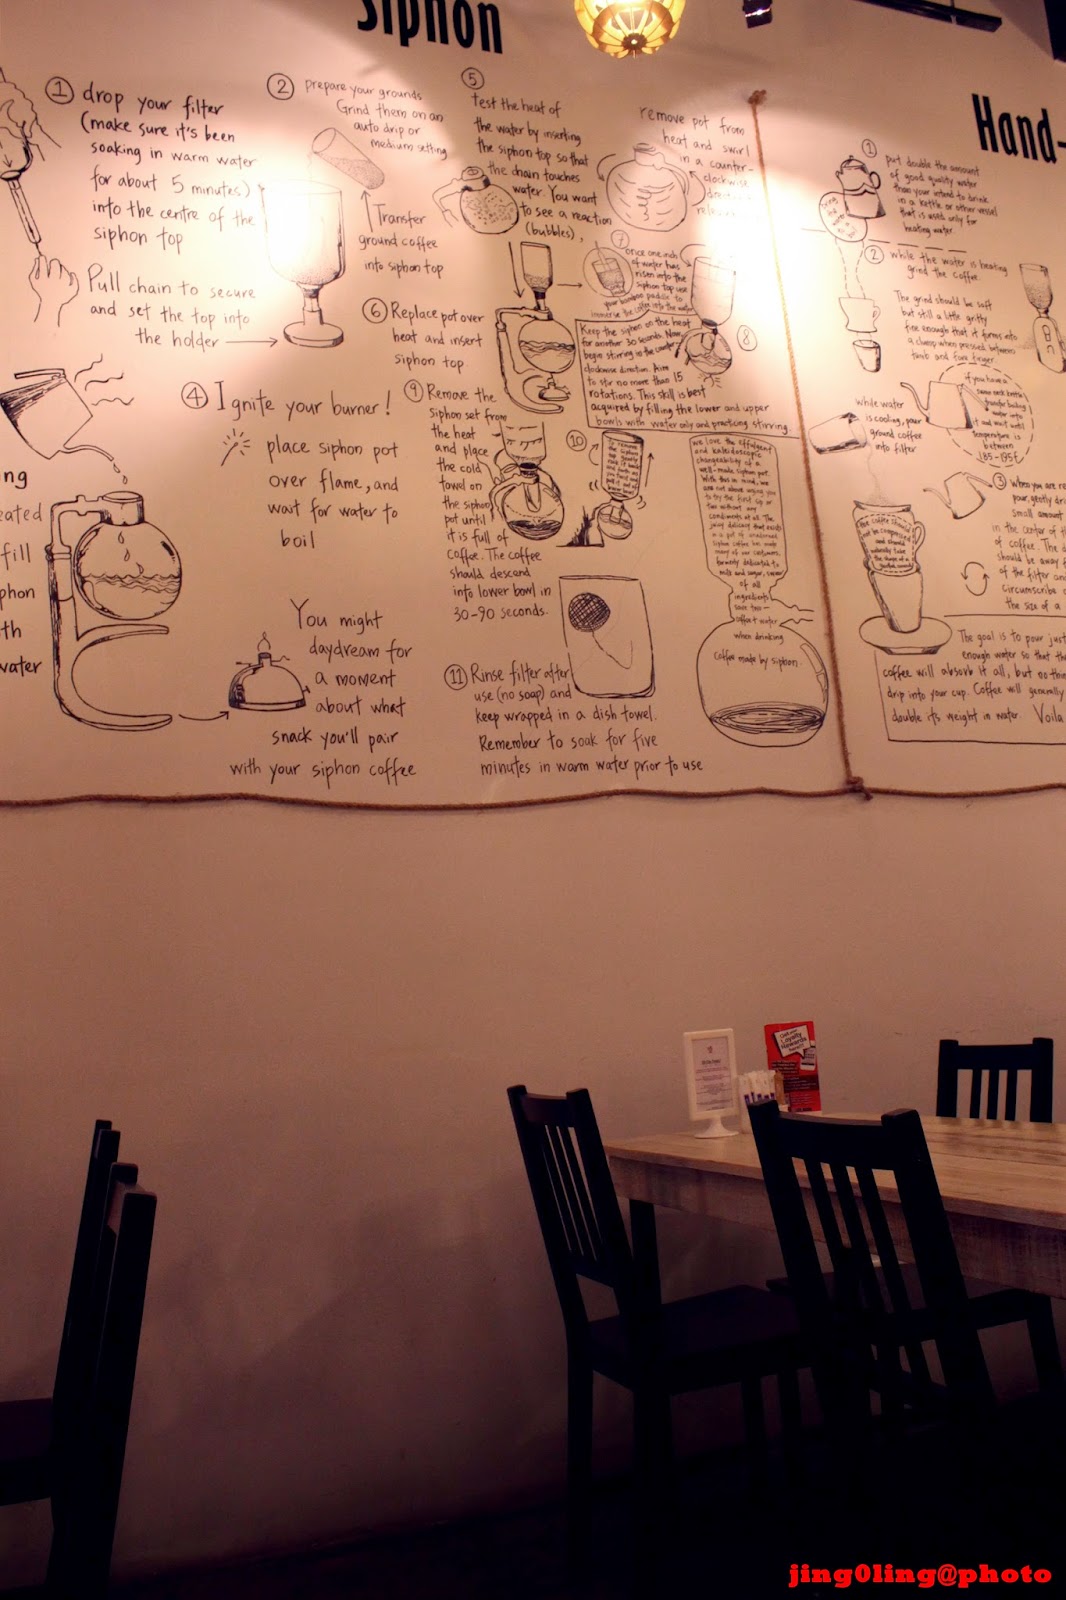 Siphon
① drop your filter
(make sure it's been
soaking in warm water
for about 5 minutes)
into the centre of the
siphon top
Pull chain to secure
and set the top into
the holder
② prepare your grounds
Grind them on an
auto drip or
medium setting
Transfer
ground coffee
into siphon top
ng
eated
fill
phon
th
water
④ Ignite your burner!
place siphon pot
over flame, and
wait for water to
boil
You might
daydream for
a moment
about what
snack you'll pair
with your siphon coffee
⑤
test the heat of
the water by inserting
the siphon top so that
the chain touches
water. You want
to see a reaction
(bubbles),
remove pot from
heat and swirl
in a counter-
clockwise
⑥ Replace pot over
heat and insert
siphon top.
⑦
once one inch
of water has
risen into the
siphon top use
your bamboo paddle to
immerse the coffee into the water
⑧
Keep the siphon on the heat
for another 30 seconds. Now
begin stirring in the
clockwise direction. Aim
to stir no more than 15
rotations. This skill is best
acquired by filling the lower and upper
bowls with water only and practicing stirring.
⑨ Remove the
siphon set from
the heat
and place
the cold
towel on
the siphon
pot until
it is full of
coffee. The coffee
should descend
into lower bowl in
30-90 seconds.
⑩
To remove
the siphon
top gently
⑪ Rinse filter after
use (no soap) and
keep wrapped in a dish towel.
Remember to soak for five
minutes in warm water prior to use
we love the effulgent
and kaleidoscopic
changeability of a
well-made siphon pot.
With this in mind, we
to try the first sip or
two without any
condiments at all. The
many of our customers,
formerly dedicated to
milk and sugar,
of all
ingredients
save two—
coffee & water
when drinking
Coffee made by siphon.
Hand-
①
put double the amount
of good quality water
than your intend to drink
in a kettle or other vessel
that is used only for
heating water.
② while the water is heating
grind the coffee.
The grind should be soft
but still a little gritty
fine enough that it forms into
a clump when pressed between
tumb and fore finger
if you have a
swan neck kettle
transfer boiling
water into
it and wait until
temperature is
between
185-195°F
while water
is cooling, pour
ground coffee
into filter
The coffee should
not be compressed
and should
naturally take
the shape of a
③ When you are re
pour, gently dri
small amount
in the center of t
of coffee. The d
should be away f
of the filter and
circumscribe a
the size of a
The goal is to pour just
enough water so that th
coffee will absorb it all, but no thin
drip into your cup. Coffee will generally
double its weight in water. Voila
Loyalty
Rewards
jing0ling@photo